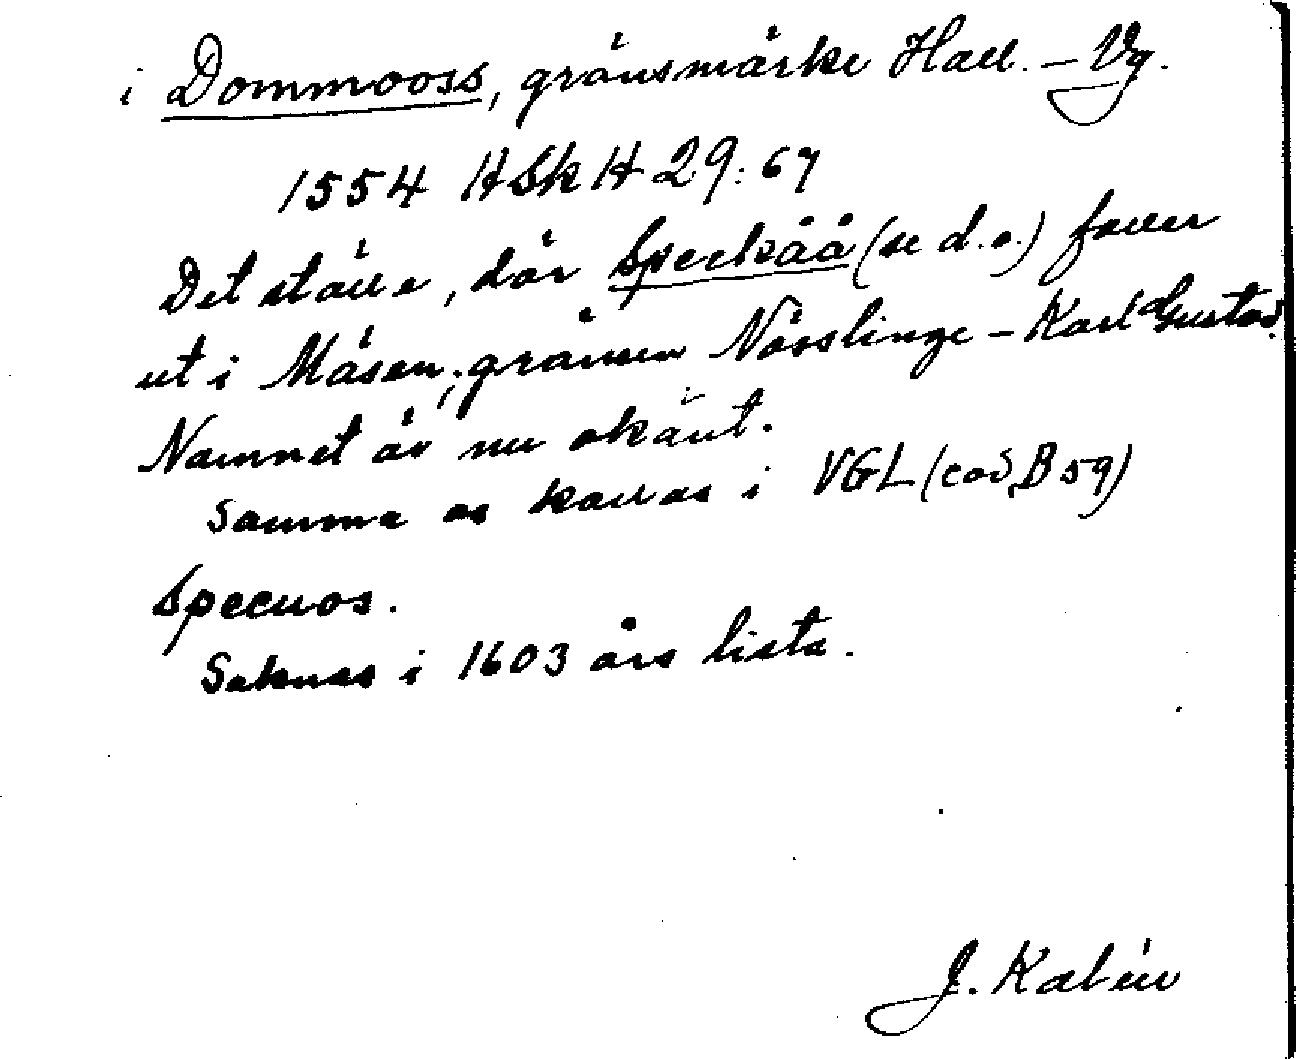 i Dommooss, gränsmärke Hall. – Vg.
1554 HSkH 29:67
Det ställe, där Speckåå (se d.o.) faller
ut i Måsen; gränsen Nösslinge – Karl Gustav.
Namnet är nu okänt.
Samma os kallas i VGL (cod. B 59)
Specuos.
Saknas i 1603 års lista.
J. Kalén